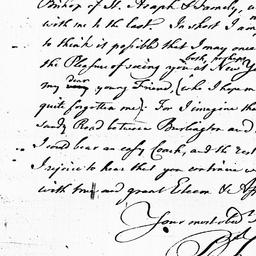 Bishop of St. Asaph's Family, w
with me to the last. In short I am
to think it possible that I may once
both, perhaps
the Pleasure of seeing you at New Y
dear
my young Friend, (who I hope
quite forgotten me). For I imagine tha
sandy Road between Burlington and
I could bear an easy Coach, and the rest
I rejoice to hear that you continue w
with true and great Esteem & Af
Your most obed